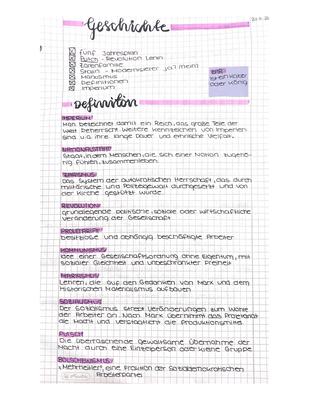 Geschichte
fünf Jahresplan
Putsch - Revolution Lenin
Zarenfamilie
Stalin - Modernisierer ja/nein
Marxismus
Definitionen
Imperium
Definition
IMPERIUM
Man bezeichnet damit ein Reich, das große Teile der
Welt beherrscht. Weitere Kennzeichen von Imperien
sind u.a. ihre lange Dauer und ethnische Vielfalt.
NATIONALSTAAT
Staat, in dem Menschen, die sich einer Nation zugehö-
rig fühlen, zusammenleben.
ZARISMUS
Das System der autokratischen Herrschaft, das durch
militärische und Polizeigewalt durchgesetzt und von
der Kirche gestützt wurde.
REVOLUTION
grundlegende politische, soziale oder wirtschaftliche
Veränderung der Gesellschaft
PROLETARIER
besitzlose und abhängig beschäftigte Arbeiter
KOMMUNISMUS
Idee einer Gesellschaftsordnung ohne Eigentum, mit
sozialer Gleichheit und unbeschränkter Freiheit
MARXISMUS
Lehren, die auf den Gedanken von Marx und dem
Historischen Materialismus aufbauen
SOZIALISMUS
Der Sozialismus strebt Veränderungen zum Wohle
der Arbeiter an. Nach Marx übernimmt das Proletariat
die Macht und verstaatlicht die Produktionsmittel.
PUTSCH
Die überraschende gewaltsame Übernahme der
Macht durch eine Einzelperson oder kleine Gruppe
BOLSCHEWISMUS
"Mehrheitler", eine Fraktion der Sozialdemokratischen
Arbeiterpartei
ist ein Kaiser
oder König